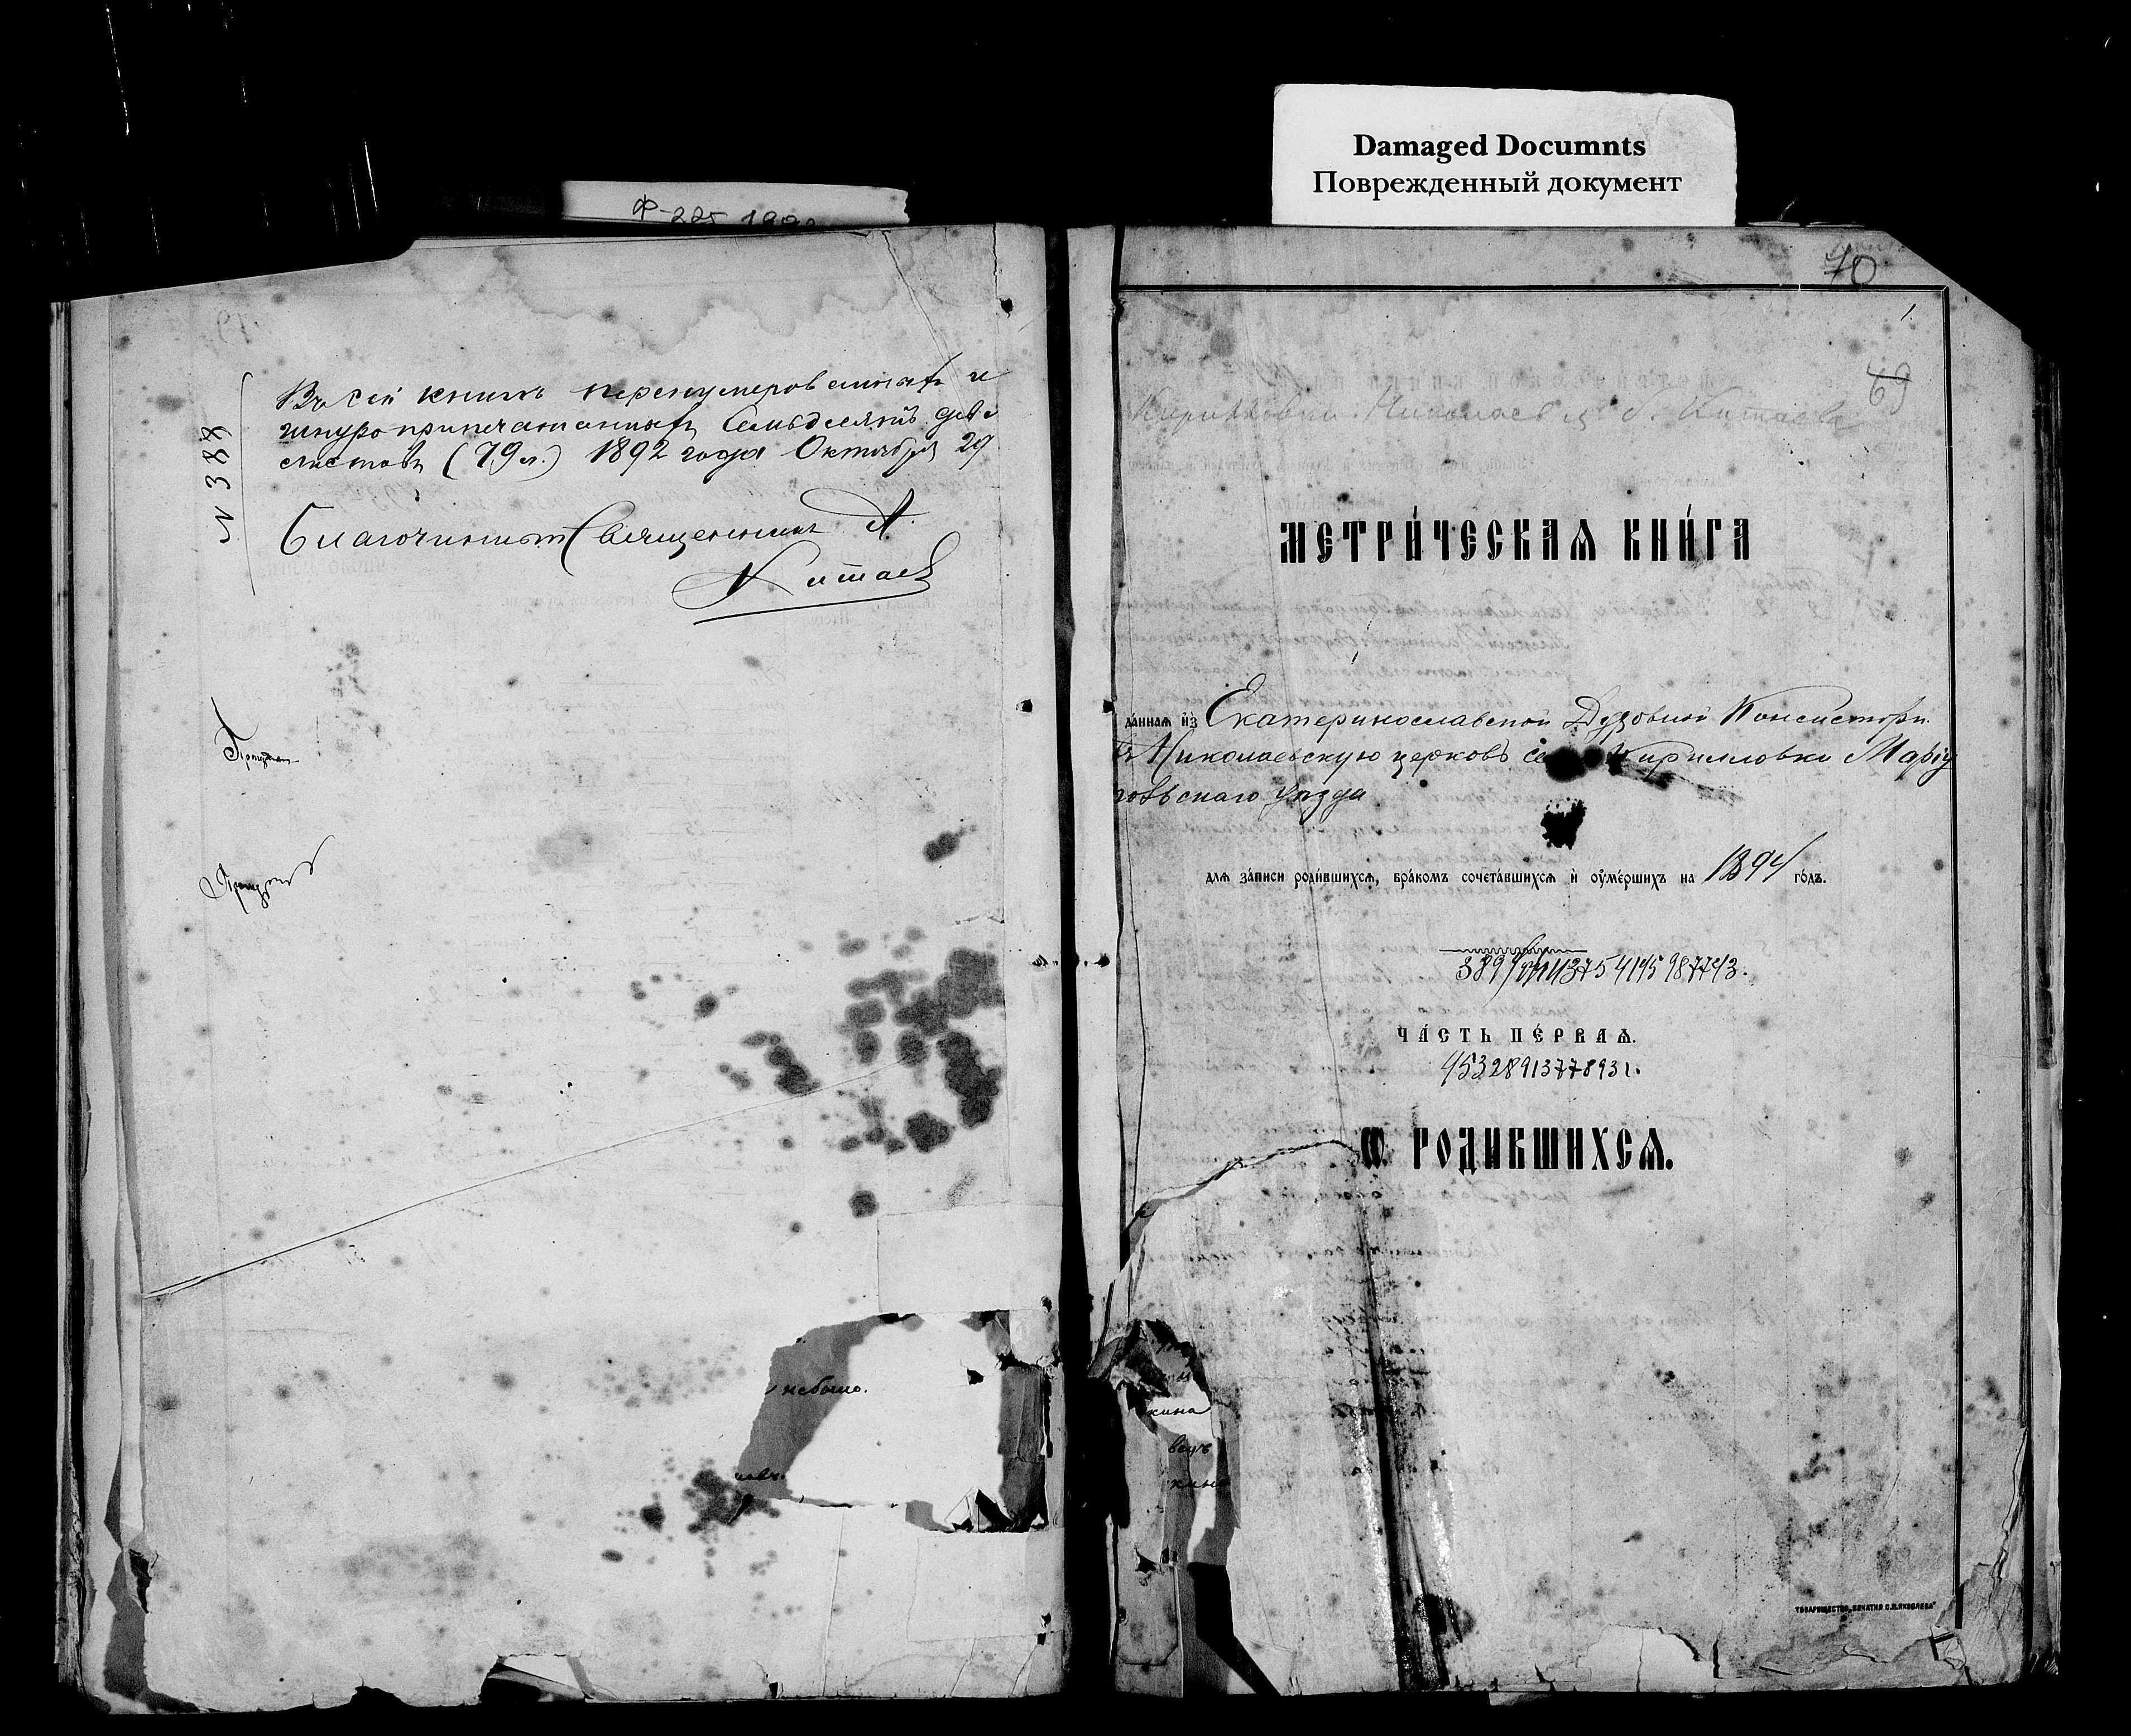 Damaged Documnts
Поврежденный документ
Ф-225
№ 388
Въ сей книгѣ перенумерованныхъ и
шнуроприпечатанныхъ Семьдесятъ девя
листовъ (79 л.) 1892 года Октября 29
Благочинный Священникъ А.
Китаевъ
небыло.
70
1.
69
Николаев
МЕТРИ́ЧЕСКАѦ КНИ́ГА
да́ннаѧ и҆з̾ Екатеринославской Духовной Консистори
Николаевскую церковь Кирилловки Маріу
польскаго уѣзда
длѧ за́писи роди́вшихсѧ, бра́комъ сочета́вшихсѧ и҆ оу҆ме́ршихъ на 1894 го́дъ.
ЧА́СТЬ ПЕ́РВАѦ.
45328913778931.
Ѡ РОДИВШИХСѦ.
кина
ТОВАРИЩЕСТВО „ПЕЧАТНЯ С.П.ЯКОВЛЕВА"